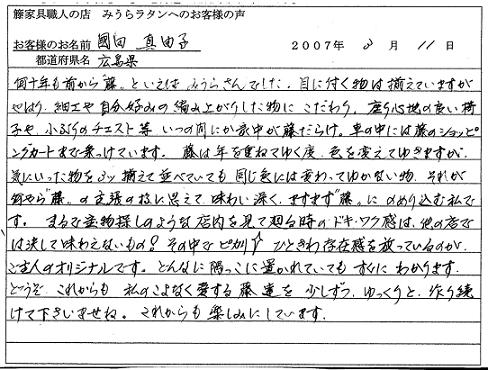 籐家具職人の店 みうらラタンへのお客様の声
お客様のお名前 國田 真由子
2007年 3月 11日
都道府県名 広島県
何十年も前から“藤”といえば みうらさんでした。目に付く物は揃えていますが
やはり 細工や自分好みの編み上がりした物に こだわり、座り心地の良い椅
子や、小ぶりのチェスト等 いつの間にか家中が藤だらけ。車の中には藤のショッピ
ングカートまで乗っけています。藤は年を重ねてゆく度、色を変えてゆきますが、
気にいった物を2ツ揃えて並べていても 同じ色には変わってゆかない物、それが
何やら“藤”の主張の様に思えて 味わい深く、ますます“藤”にのめり込む私で
す。まるで宝物探しのような店内を見て廻る時のドキ・ワク感は、他の店で
は決して味わえないもの？その中でピカリ ひときわ存在感を放っているのが
ご主人のオリジナルです。どんなに隅っこに置かれていても すぐにわかります。
どうぞ これからも 私のこよなく愛する藤達を 少しずつ、ゆっくりと、作り続
けて下さいませね。これからも楽しみにしています。